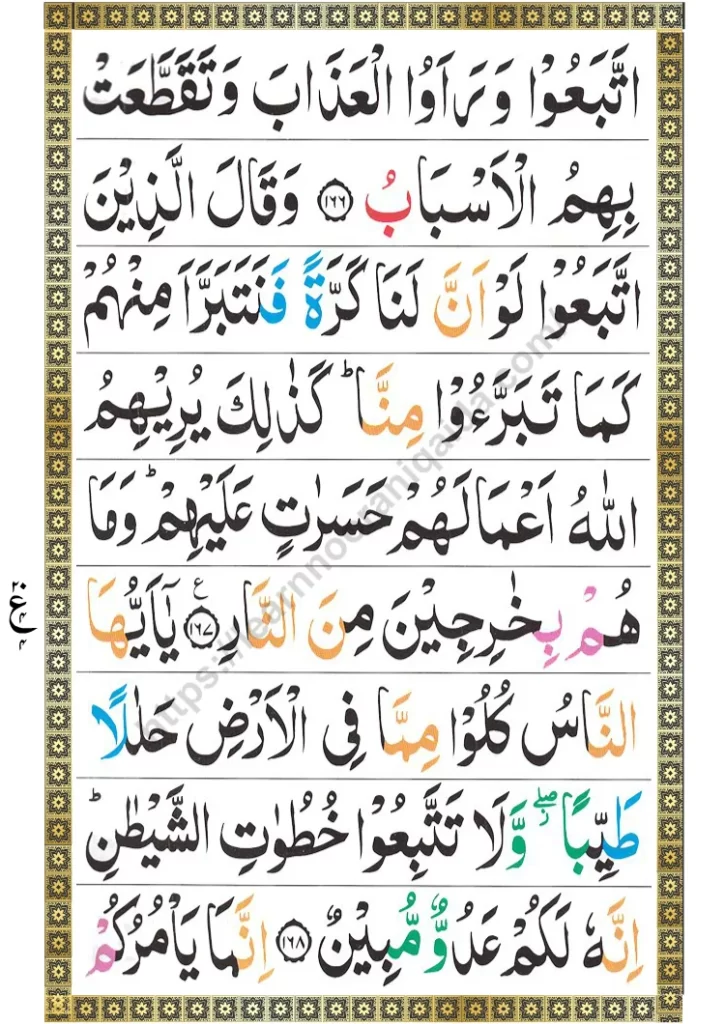 اتَّبَعُوْا وَرَاَوُا الْعَذَابَ وَتَقَطَّعَتْ
بِهِمُ الْاَسْبَابُ ﴿۱۶۶﴾ وَقَالَ الَّذِيْنَ
اتَّبَعُوْا لَوْ اَنَّ لَنَا كَرَّةً فَنَتَبَرَّاَ مِنْهُمْ
كَمَا تَبَرَّءُوْا مِنَّا ؕ كَذٰلِكَ يُرِيْهِمُ
اللّٰهُ اَعْمَالَهُمْ حَسَرٰتٍ عَلَيْهِمْ ؕ وَمَا
هُمْ بِخٰرِجِيْنَ مِنَ النَّارِ ﴿۱۶۷﴾ ع يٰۤاَيُّهَا
النَّاسُ كُلُوْا مِمَّا فِى الْاَرْضِ حَلٰلًا
طَيِّبًا ۖ وَّلَا تَتَّبِعُوْا خُطُوٰتِ الشَّيْطٰنِ ؕ
اِنَّهٗ لَكُمْ عَدُوٌّ مُّبِيْنٌ ﴿۱۶۸﴾ اِنَّمَا يَاْمُرُكُمْ
https://learnnooraniqaida.com/